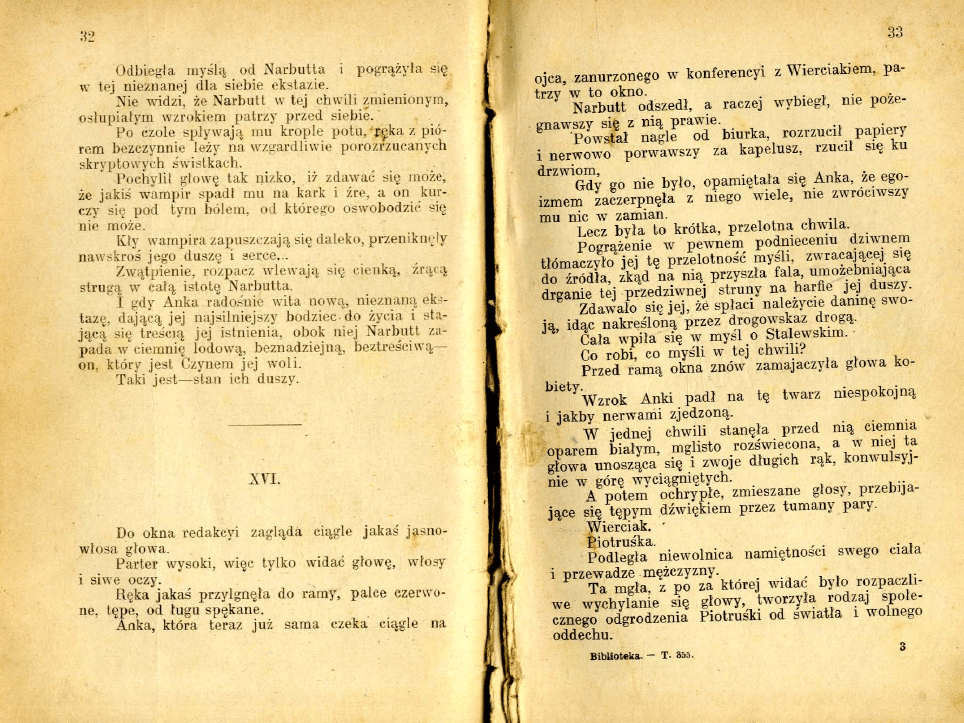 32
Odbiegła myślą od Narbutta i pogrążyła się
w tej nieznanej dla siebie ekstazie.
Nie widzi, że Narbutt w tej chwili zmienionym,
osłupiałym wzrokiem patrzy przed siebie.
Po czole spływają mu krople potu, ręka z pió-
rem bezczynnie leży na wzgardliwie porozrzucanych
skryptowych świstkach.
Pochylił głowę tak nizko, iż zdawać się może,
że jakiś wampir spadł mu na kark i źre, a on kur-
czy się pod tym bólem, od którego oswobodzić się
nie może.
Kły wampira zapuszczają się daleko, przeniknęły
nawskroś jego duszę i serce...
Zwątpienie, rozpacz wlewają się cienką, żrącą
strugą w całą istotę Narbutta.
I gdy Anka radośnie wita nową, nieznaną eks-
tazę, dającą jej najsilniejszy bodziec do życia i sta-
jącą się treścią jej istnienia, obok niej Narbutt za-
pada w ciemnię lodową, beznadziejną, beztreściwą—
on, który jest Czynem jej woli.
Taki jest—stan ich duszy.
XVI.
Do okna redakcyi zagląda ciągle jakaś jasno-
włosa głowa.
Parter wysoki, więc tylko widać głowę, włosy
i siwe oczy.
Ręka jakaś przylgnęła do ramy, palce czerwo-
ne, tępe, od ługu spękane.
Anka, która teraz już sama czeka ciągle na
33
ojca, zanurzonego w konferencyi z Wierciakiem, pa-
trzy w to okno.
Narbutt odszedł, a raczej wybiegł, nie poże-
gnawszy się z nią prawie.
Powstał nagle od biurka, rozrzucił papiery
i nerwowo porwawszy za kapelusz, rzucił się ku
drzwiom,
Gdy go nie było, opamiętała się Anka, że ego-
izmem zaczerpnęła z niego wiele, nie zwróciwszy
mu nic w zamian.
Lecz była to krótka, przelotna chwila.
Pogrążenie w pewnem podnieceniu dziwnem
tłómaczyło jej tę przelotność myśli, zwracającej się
do źródła, zkąd na nią przyszła fala, umożebniająca
drganie tej przedziwnej struny na harfie jej duszy.
Zdawało się jej, że spłaci należycie daninę swo-
ją, idąc nakreśloną przez drogowskaz drogą.
Cała wpiła się w myśl o Stalewskim.
Co robi, co myśli w tej chwili?
Przed ramą okna znów zamajaczyła głowa ko-
biety.
Wzrok Anki padł na tę twarz niespokojną
i jakby nerwami zjedzoną.
W jednej chwili stanęła przed nią ciemnia
oparem białym, mglisto rozświecona, a w niej ta
głowa unosząca się i zwoje długich rąk, konwulsyj-
nie w górę wyciągniętych.
A potem ochrypłe, zmieszane głosy, przebija-
jące się tępym dźwiękiem przez tumany pary.
Wierciak.
Piotruśka.
Podległa niewolnica namiętności swego ciała
i przewadze mężczyzny.
Ta mgła, z po za której widać było rozpaczli-
we wychylanie się głowy, tworzyła rodzaj społe-
cznego odgrodzenia Piotruśki od światła i wolnego
oddechu.
Biblioteka. — T. 355.
3